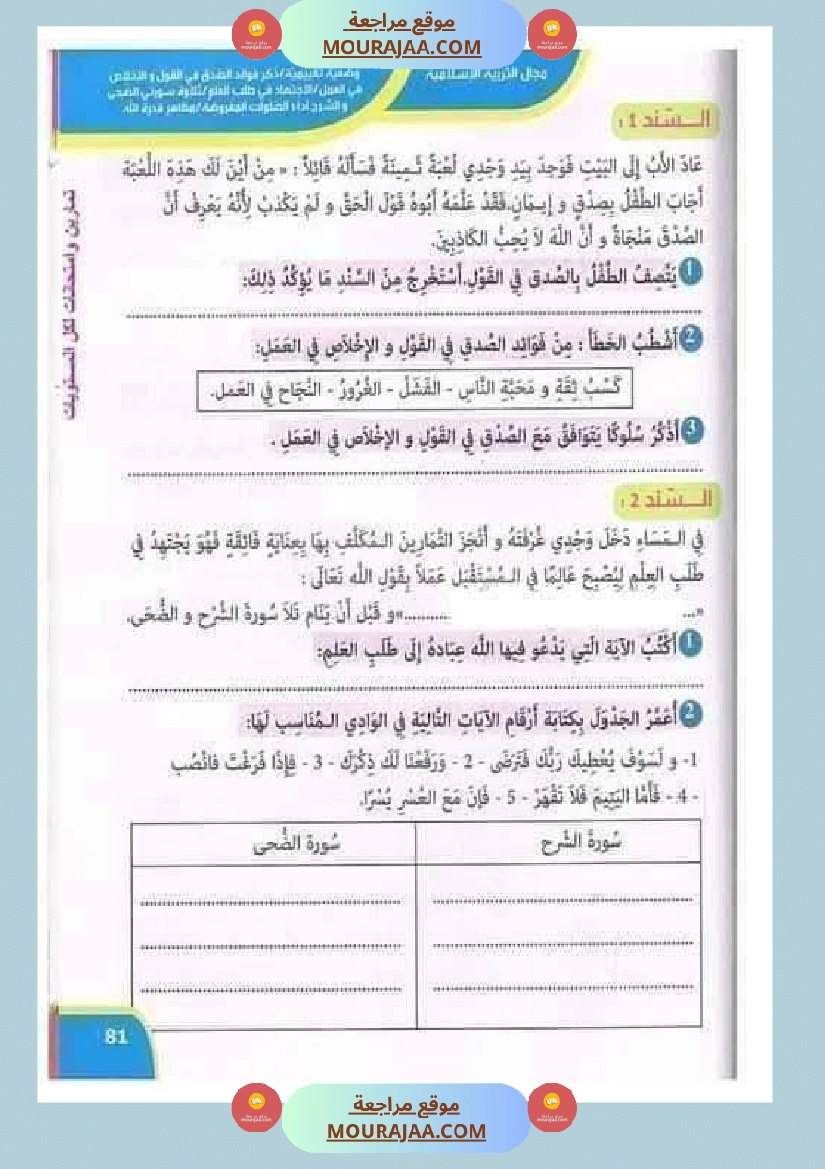 موقع مراجعة
MOURAJAA.COM
وضعية تقييمية/ذكر فوائد الصدق في القول و الإخلاص
في العمل/الاجتهاد في طلب العلم/تلاوة سورتي الضحى
و الشرح/أداء الصلوات المفروضة/مظاهر قدرة الله
مجال التربية الإسلامية
تمارين و امتحانات لكل المستويات
الــسّند 1 :
عَادَ الأَبُ إِلَى البَيْتِ فَوَجَدَ بِيَدِ وَجْدِي لُعْبَةً ثَـمِينَةً فَسَأَلَهُ قَائِلاً : « مِنْ أَيْنَ لَكَ هَذِهِ اللُّعْبَة
أَجَابَ الطِّفْلُ بِصِدْقٍ و إِيـمَانٍ.فَقَدْ عَلَّمَهُ أَبُوهُ قَوْلَ الْحَقِّ و لَمْ يَكْذِبْ لِأَنَّهُ يَعْرِفُ أَنَّ
الصِّدْقَ مَنْجَاةٌ و أَنَّ اللهَ لاَ يُحِبُّ الكَاذِبِينَ.
1 يَتَّصِفُ الطِّفْلُ بِالصِّدقِ فِي القَوْلِ.أَسْتَخْرِجُ مِنَ السَّنْدِ مَا يُؤَكِّدُ ذَلِكَ:
2 أَشْطُبُ الخَطَأَ : مِنْ فَوَائِدِ الصِّدقِ فِي القَوْلِ و الإِخْلاَصِ فِي العَمَلِ:
كَسْبُ ثِقَةِ و مَحَبَّةِ النَّاسِ - الفَشَلُ - الغُرُورُ - النَّجَاح فِي العَمل.
3 أَذْكُرُ سُلُوكًا يَتَوَافَقُ مَعَ الصِّدْقِ فِي القَوْلِ و الإِخْلاَص فِي العَمَلِ .
الــسّند 2 :
فِي الـمَسَاءِ دَخَلَ وَجْدِي غُرْفَتَهُ و أَنْجَزَ التَّمَارِينَ الـمُكَلَّفَ بِهَا بِعِنَايَةٍ فَائِقَةٍ فَهُوَ يَجْتَهِدُ فِي
طَلَبِ العِلْمِ لِيُصْبِحَ عَالِمًا فِي الـمُسْتَقْبَلِ عَمَلاً بِقَوْلِ اللَّه تَعَالَى :
«... ..........»و قَبْل أَنْ يَنَام تَلاَ سُورةَ الشَّرْح و الضُّحَى.
1 أَكْتُبُ الآيَةَ الَّتِي يَدْعُو فِيها اللَّه عِبَادهُ إِلَى طَلَبِ العِلمِ:
2 أُعَمِّرُ الجَدْوَلَ بِكِتَابَة أَرْقَامِ الآيَاتِ التَّالِيَةِ فِي الوَادِي الـمُنَاسِب لَهَا:
1- و لَسَوْفَ يُعْطِيكَ رَبُّكَ فَتَرْضَى - 2 - وَرَفَعْنَا لَكَ ذِكْرَكَ - 3 - فَإِذَا فَرَغْتَ فَانْصَبْ
- 4 - فَأَمَّا اليَتِيمَ فَلاَ تَقْهَرْ - 5 - فَإِنَ مَعَ العُسْرِ يُسْرًا.
سُورةُ الشّرح
سُورة الضُّحى
81
موقع مراجعة
MOURAJAA.COM